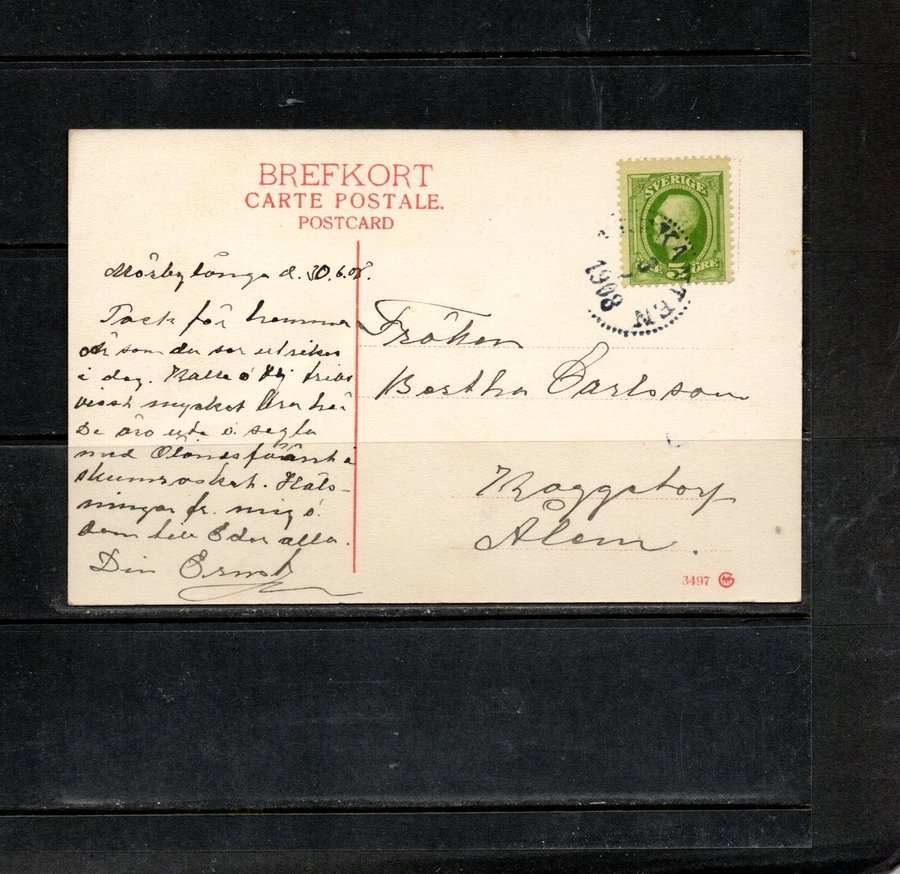 BREFKORT
CARTE POSTALE.
POSTCARD
SVERIGE
5 ÖRE
1908
Mörbylånga d. 30.6.08.
Tack för
som du ser
i dag. Kalle o
visst mycket bra här
De äro ute o segla
med
Häls-
ningar fr. mig o.
dem till Eder alla.
Din Ernst
Fröken
Bertha Carlsson
Roggetorp
Ålem.
3497